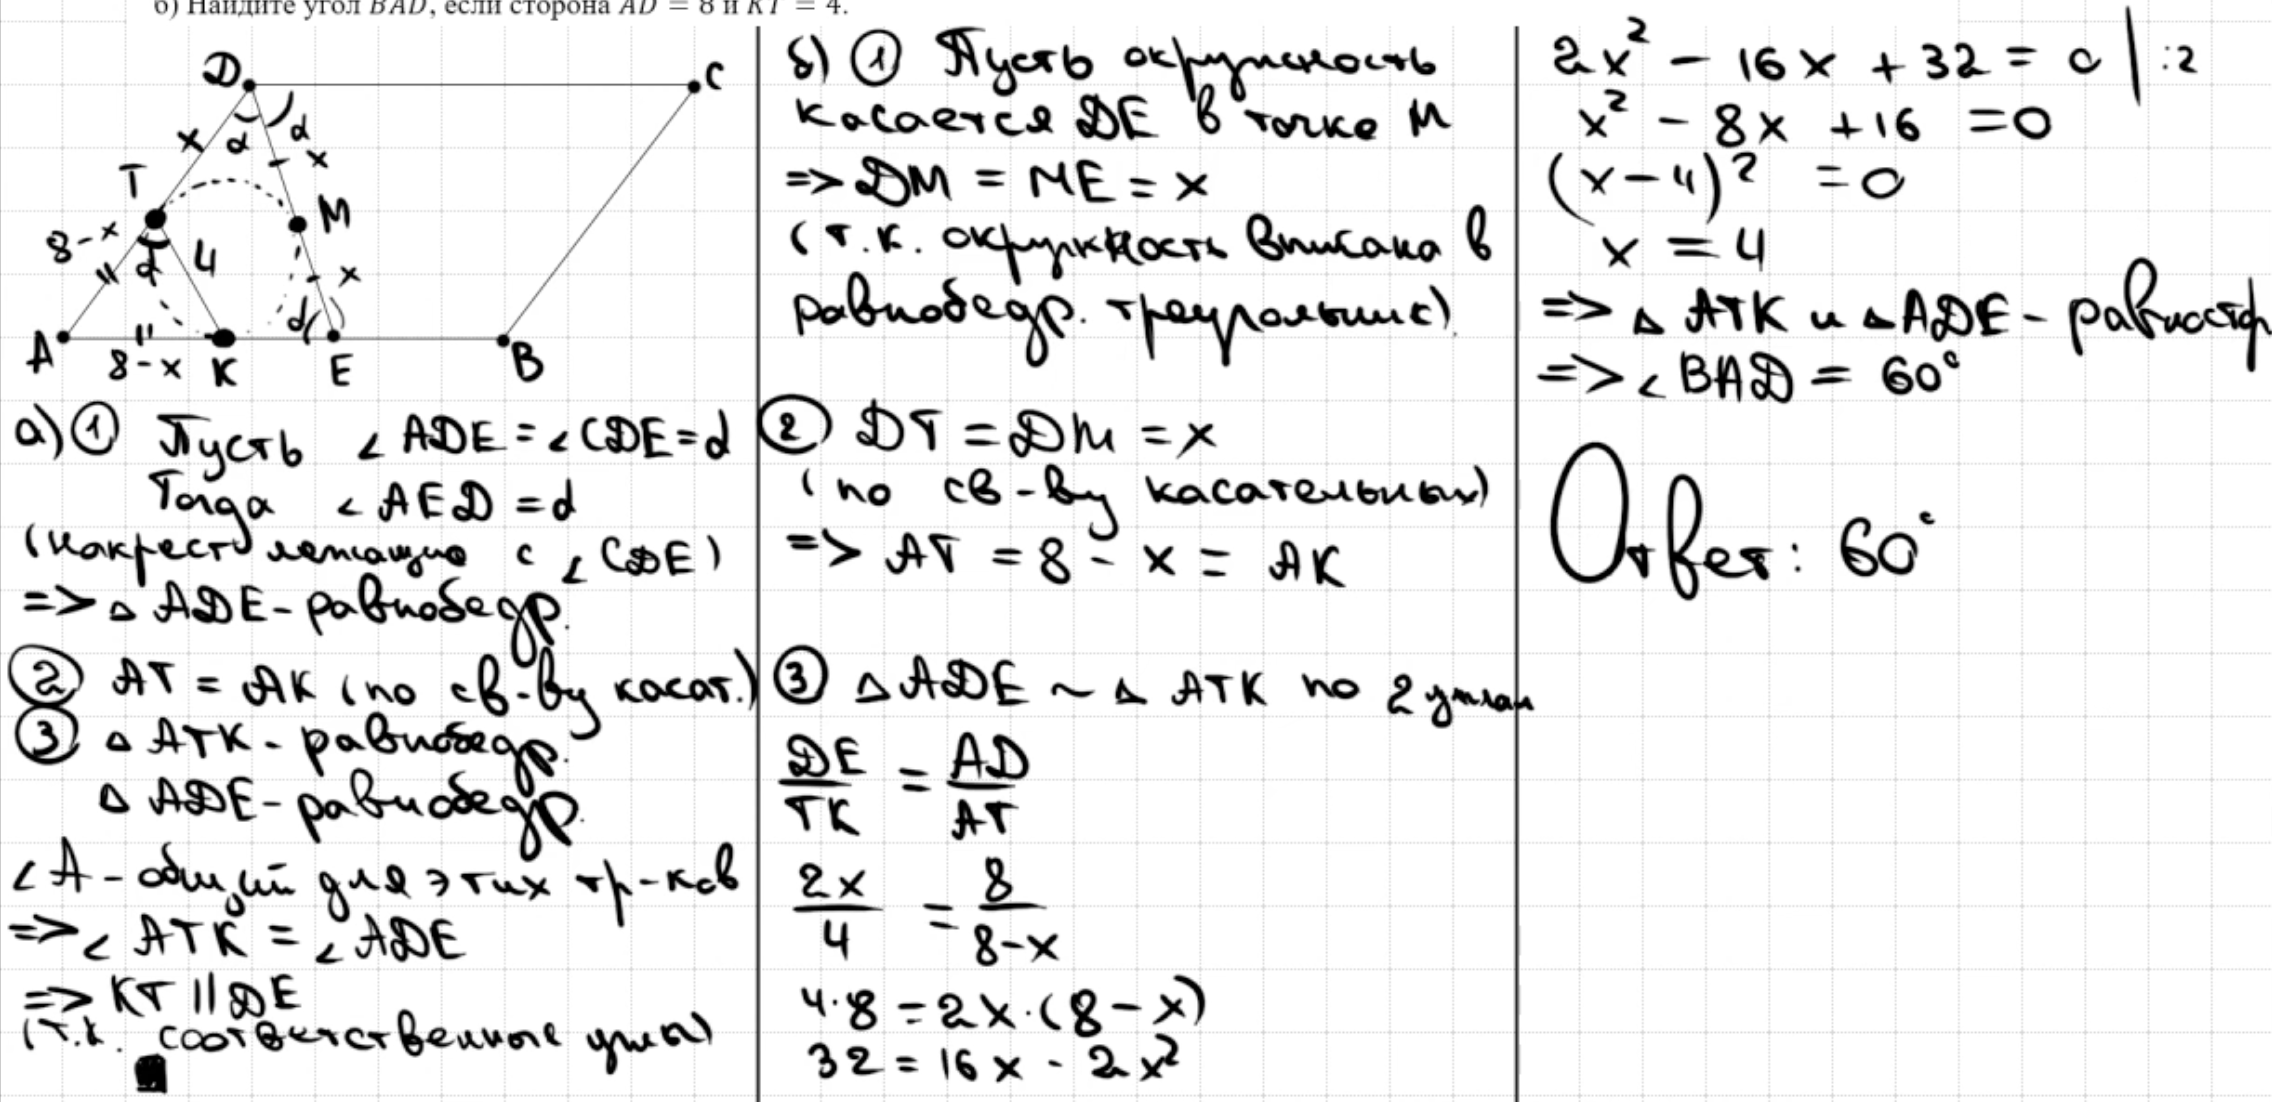 б) Найдите угол BAD, если сторона AD = 8 и KT = 4.
D
C
x
α
α
x
T
M
8-x
α
4
x
α
A
8-x
K
E
B
а) ① Пусть ∠ADE = ∠CDE = α
Тогда ∠AED = α
(накрест лежащие с ∠CDE)
=> △ADE - равнобедр.
② AT = AK (по св-ву касат.)
③ △ATK - равнобедр.
△ADE - равнобедр.
∠A - общий для этих тр-ков
=> ∠ATK = ∠ADE
=> KT || DE
(т.к. соответственные углы)
б) ① Пусть окружность
касается DE в точке M
=> DM = ME = x
(т.к. окружность вписана в
равнобедр. треугольник).
② DT = DM = x
(по св-ву касательных)
=> AT = 8 - x = AK
③ △ADE ~ △ATK по 2 углам
DE/TK = AD/AT
2x/4 = 8/8-x
4·8 = 2x·(8-x)
32 = 16x - 2x²
2x² - 16x + 32 = 0 | :2
x² - 8x + 16 = 0
(x-4)² = 0
x = 4
=> △ATK и △ADE - равностор
=> ∠BAD = 60°
Ответ: 60°